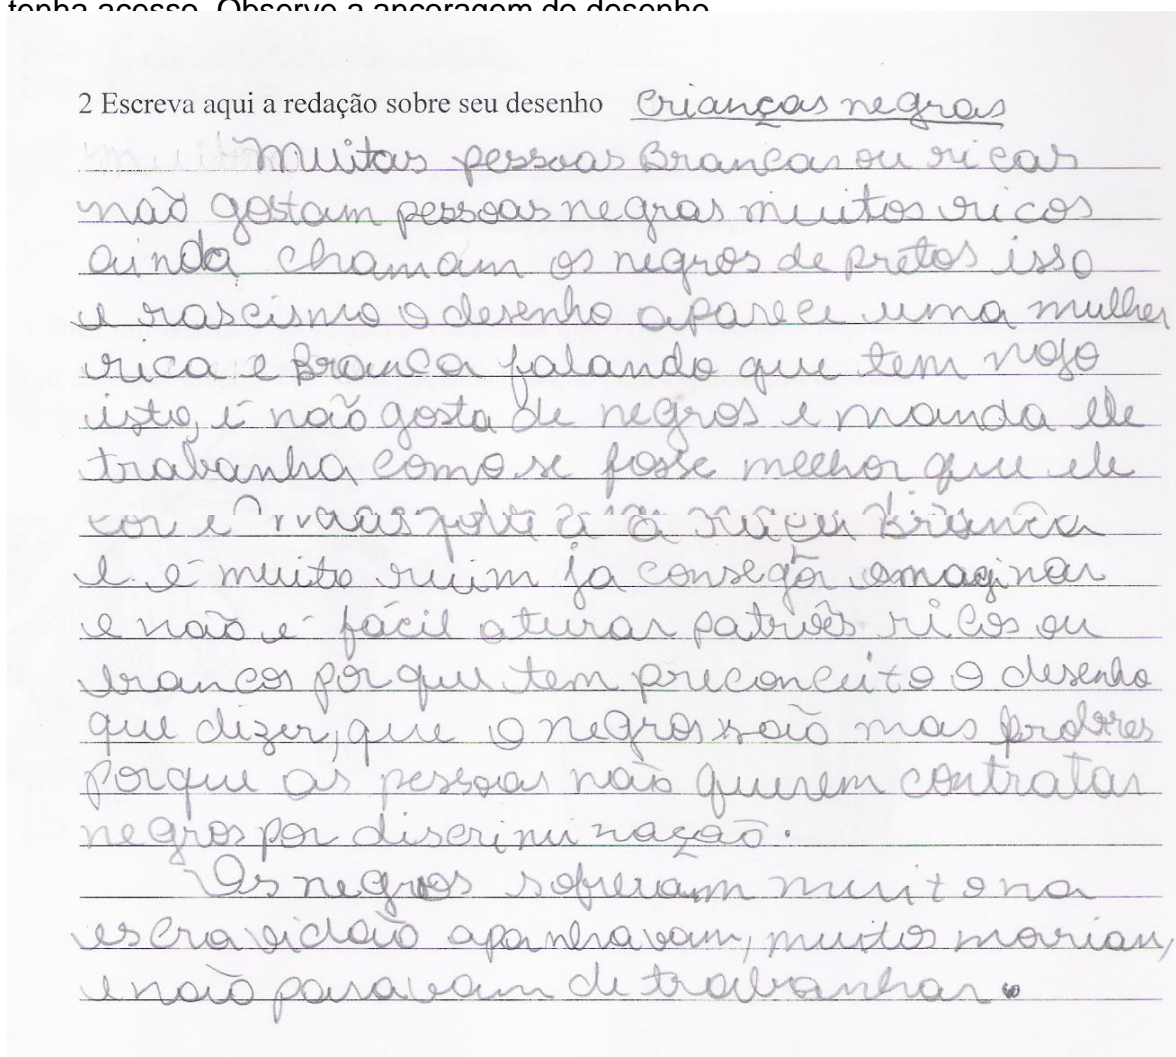 tenha acesso. Observe a ancoragem do desenho
2 Escreva aqui a redação sobre seu desenho Crianças negras
Muitas pessoas Brancas ou ricas
não gostam pessoas negras muitos ricos
ainda chamam os negros de pretos isso
e rascismo o desenho aparece uma mulher
rica e Branca falando que tem nojo
isto, é não gosta de negros e manda ele
trabanha como se fosse melhor que ele
cor e a raça Branca
e é muito ruim ja consegõr omaginar
e não é fácil aturar patrões ricos ou
branco por que tem preconceito O desenho
que dizer, que o negros são mas probres
porque as pessoas não querem contratar
negros por discriminação.
Os negros sofreram muito na
escravidão apanhavam, muitos morian,
e não paravam de trabanhar.